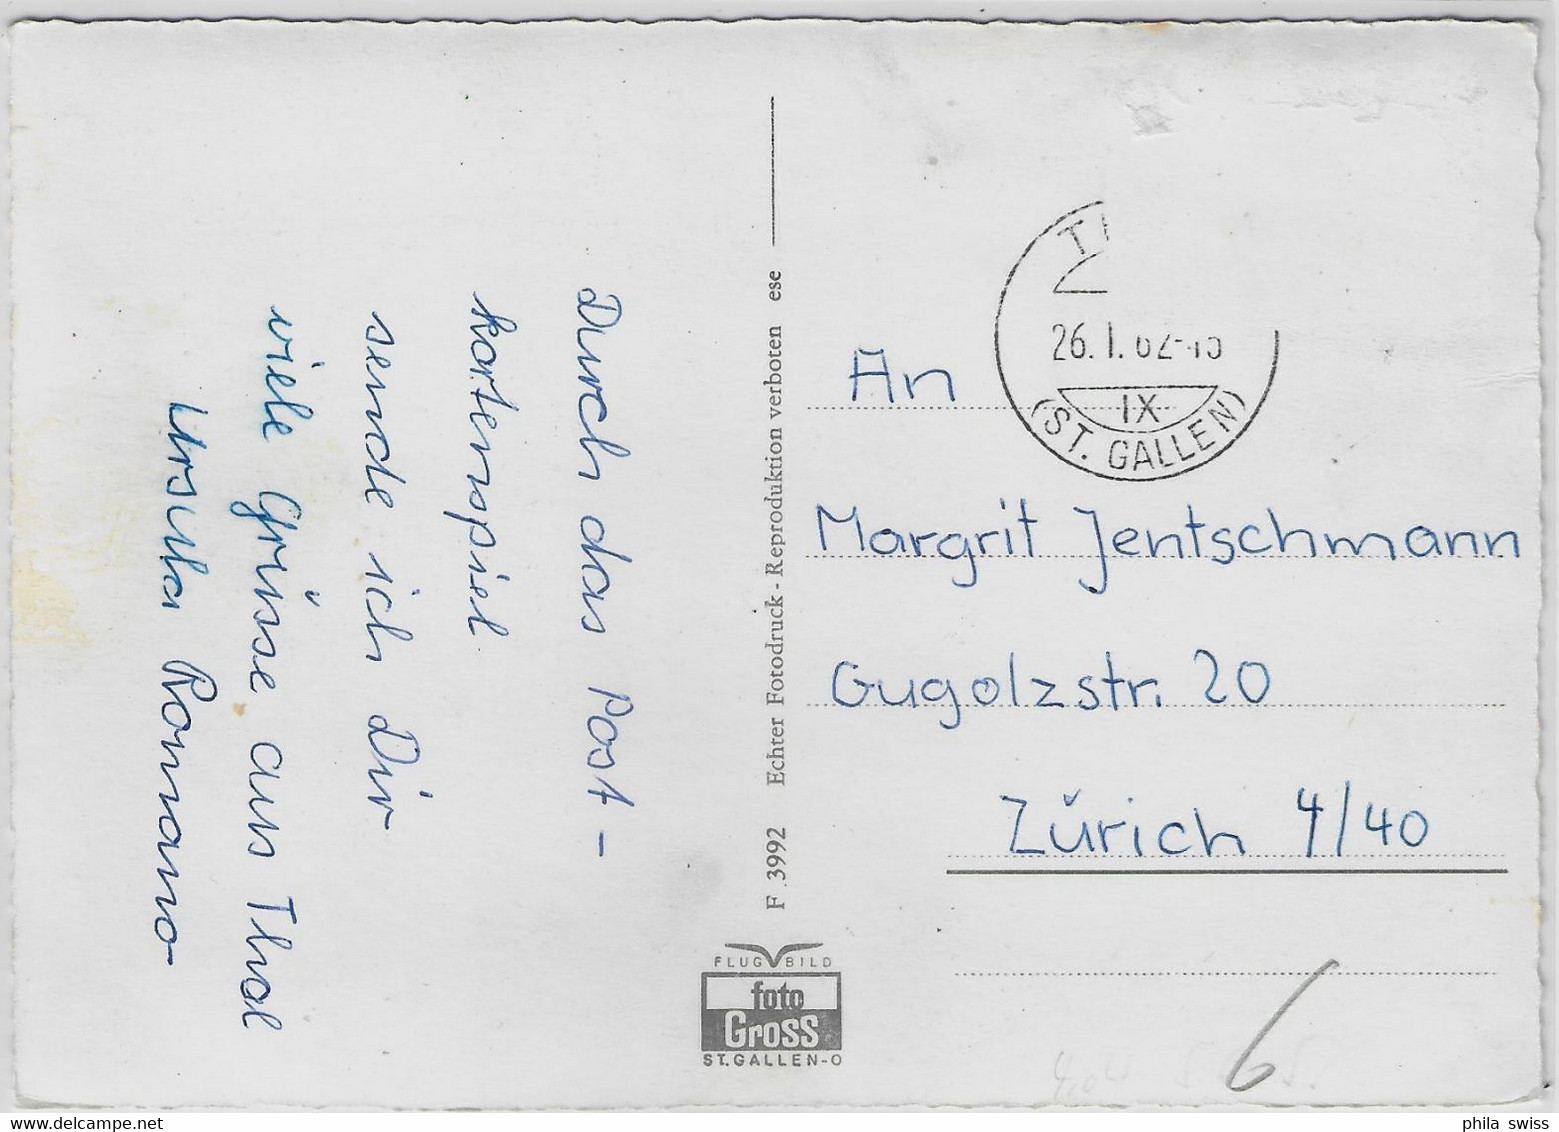 Durch das Post-
kartenspiel
sende ich Dir
viele Grüsse aus Thal
Ursula Romano
F 3992 Echter Fotodruck - Reproduktion verboten ese
FLUG BILD
foto
Gross
ST. GALLEN-O
26. I. 62-
IX
(ST. GALLEN)
An
Margrit Jentschmann
Gugolzstr. 20
Zürich 4/40
6
phila swiss